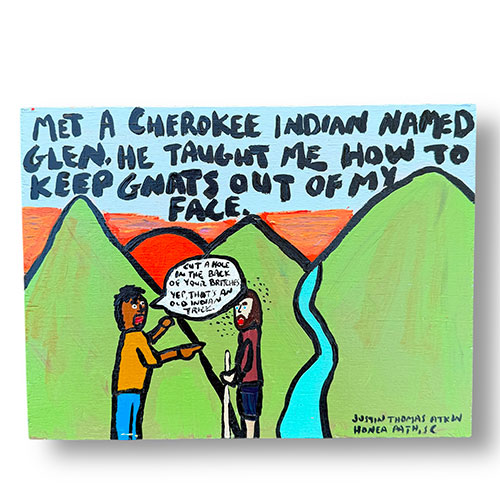 MET A CHEROKEE INDIAN NAMED
GLEN. HE TAUGHT ME HOW TO
KEEP GNATS OUT OF MY
FACE.
CUT A HOLE
IN THE BACK
OF YOUR BRITCHES.
YEP, THAT'S AN
OLD INDIAN
TRICK.
JUSTIN THOMAS ATKIN
HONEA PATH, SC